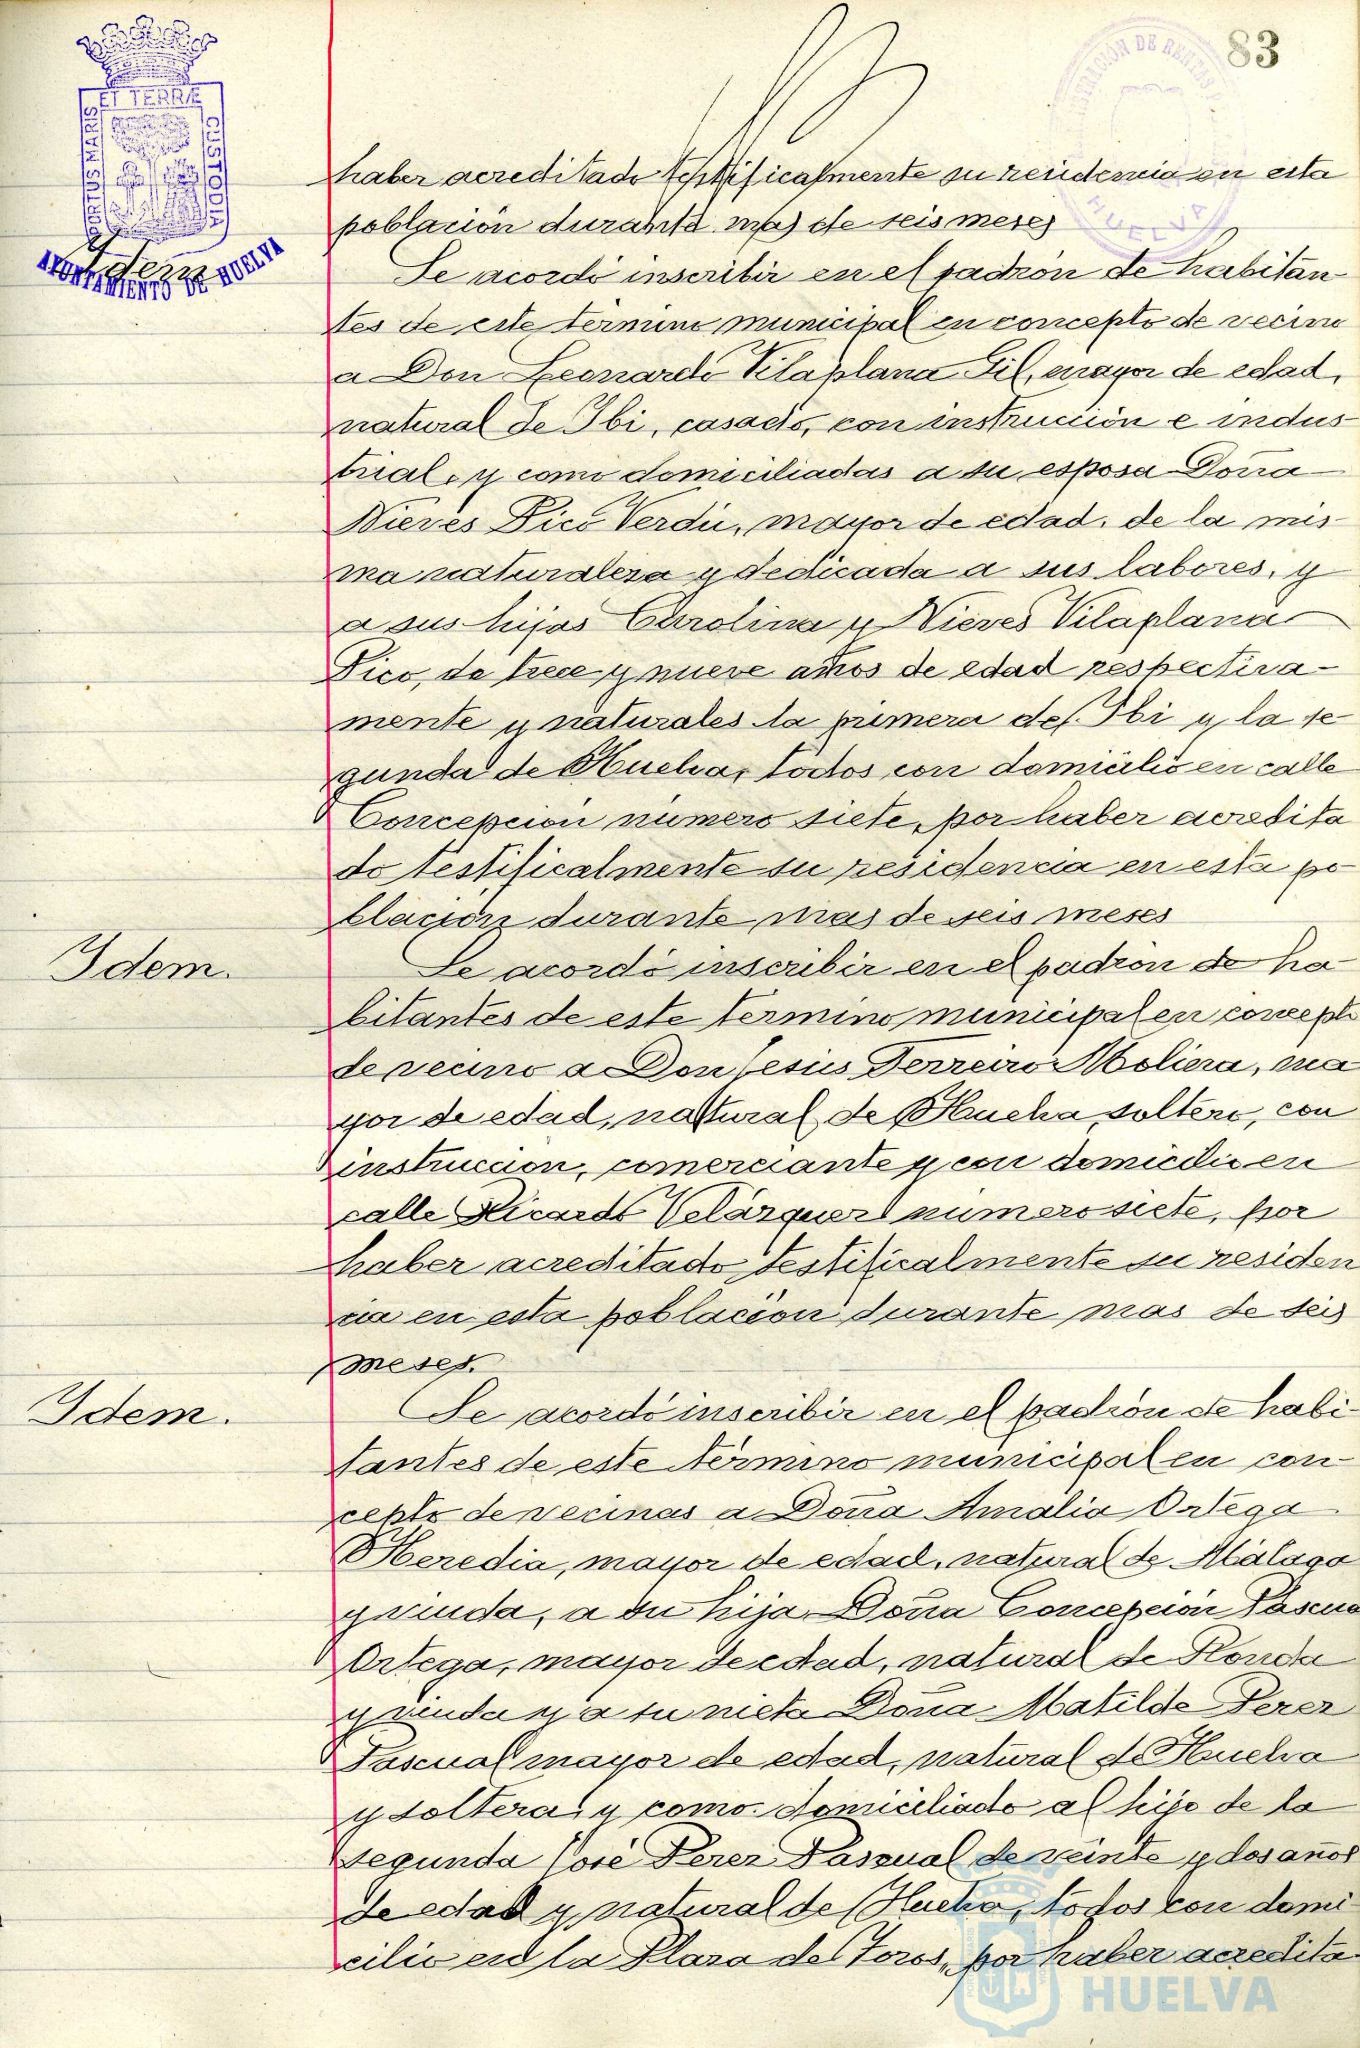 83
ET TERRÆ
PORTUS MARIS
CUSTODIA
AYUNTAMIENTO DE HUELVA
DE RENTAS
HUELVA
haber acreditado testificalmente su residencia en esta
población durante mas de seis meses
Idem
Se acordó inscribir en el padrón de habitan-
tes de este termino municipal en concepto de vecino
a Don Leonardo Vilaplana Gil, mayor de edad,
natural de Ibi, casado, con instrucción e indus-
trial, y como domiciliadas a su esposa Doña
Nieves Picó Verdú, mayor de edad, de la mis-
ma naturaleza y dedicada a sus labores, y
a sus hijas Carolina y Nieves Vilaplana
Pico, de trece y nueve años de edad respectiva-
mente y naturales la primera de Ibi y la se-
gunda de Huelva, todos con domicilio en calle
Concepcion numero siete, por haber acredita
do testificalmente su residencia en esta po-
blación durante mas de seis meses
Idem.
Se acordó inscribir en el padrón de ha-
bitantes de este termino municipal en concepto
de vecino a Don Jesús Ferreiro Moliera, ma
yor de edad, natural de Huelva, soltero, con
instruccion, comerciante y con domicilio en
calle Ricardo Velázquez numero siete, por
haber acreditado testificalmente su residen
cia en esta población durante mas de seis
meses.
Idem.
Se acordó inscribir en el padrón de habi-
tantes de este término municipal en con-
cepto de vecinas a Doña Amalia Ortega
Heredia, mayor de edad, natural de Málaga
y viuda, a su hija Doña Concepción Pascua
Ortega, mayor de edad, natural de Ronda
y viuda y a su nieta Doña Matilde Perez
Pascual mayor de edad, natural de Huelva
y soltera, y como domiciliado al hijo de la
segunda José Perez Pascual de veinte y dos años
de edad y natural de Huelva, todos con domi-
cilio en la Plaza de Toros, por haber acredita
HUELVA